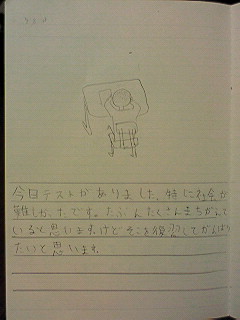 今日テストがありました。特に社会が
難しかったです。たぶんたくさんまちがって
いると思いますけどそこを復習してがんばり
たいと思います。